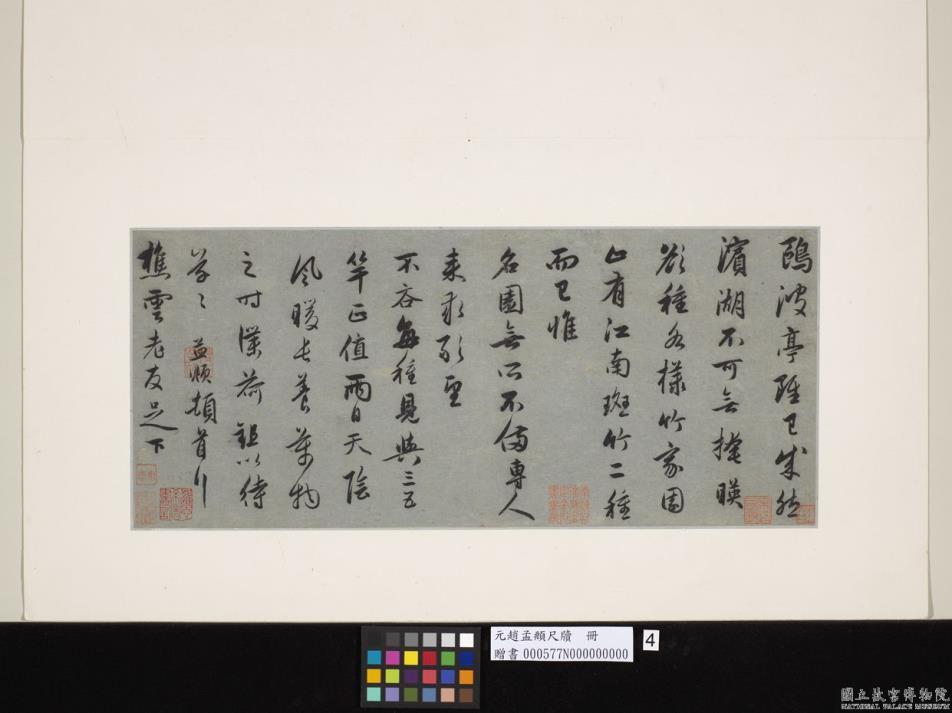 鷗波亭雖已成然
濱湖不可無掩暎
欲種各様竹家園
止有江南斑竹二種
而已惟
名園無所不備専人
来求研望
不吝每種見與三五
竿正值兩日天陰
風暖長養萬物
之时謹荷鉏以待
草〻 孟頫頓首
樵雲老友足下
元趙孟頫尺牘 冊
贈書 000577N000000000
4
國立故宮博物院
NATIONAL PALACE MUSEUM